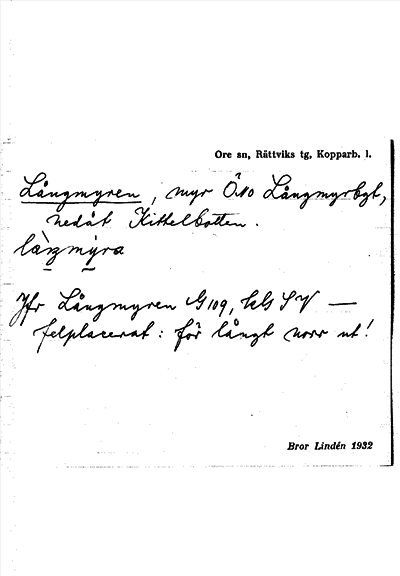 Ore sn, Rättviks tg, Kopparb. l.
Långmyren, myr ÖNO Långmyrbgt,
nedåt Kittelbotten.
långmyra
Jfr Långmyren G109, kbl SV —
felplacerat: för långt norr ut!
Bror Lindén 1932